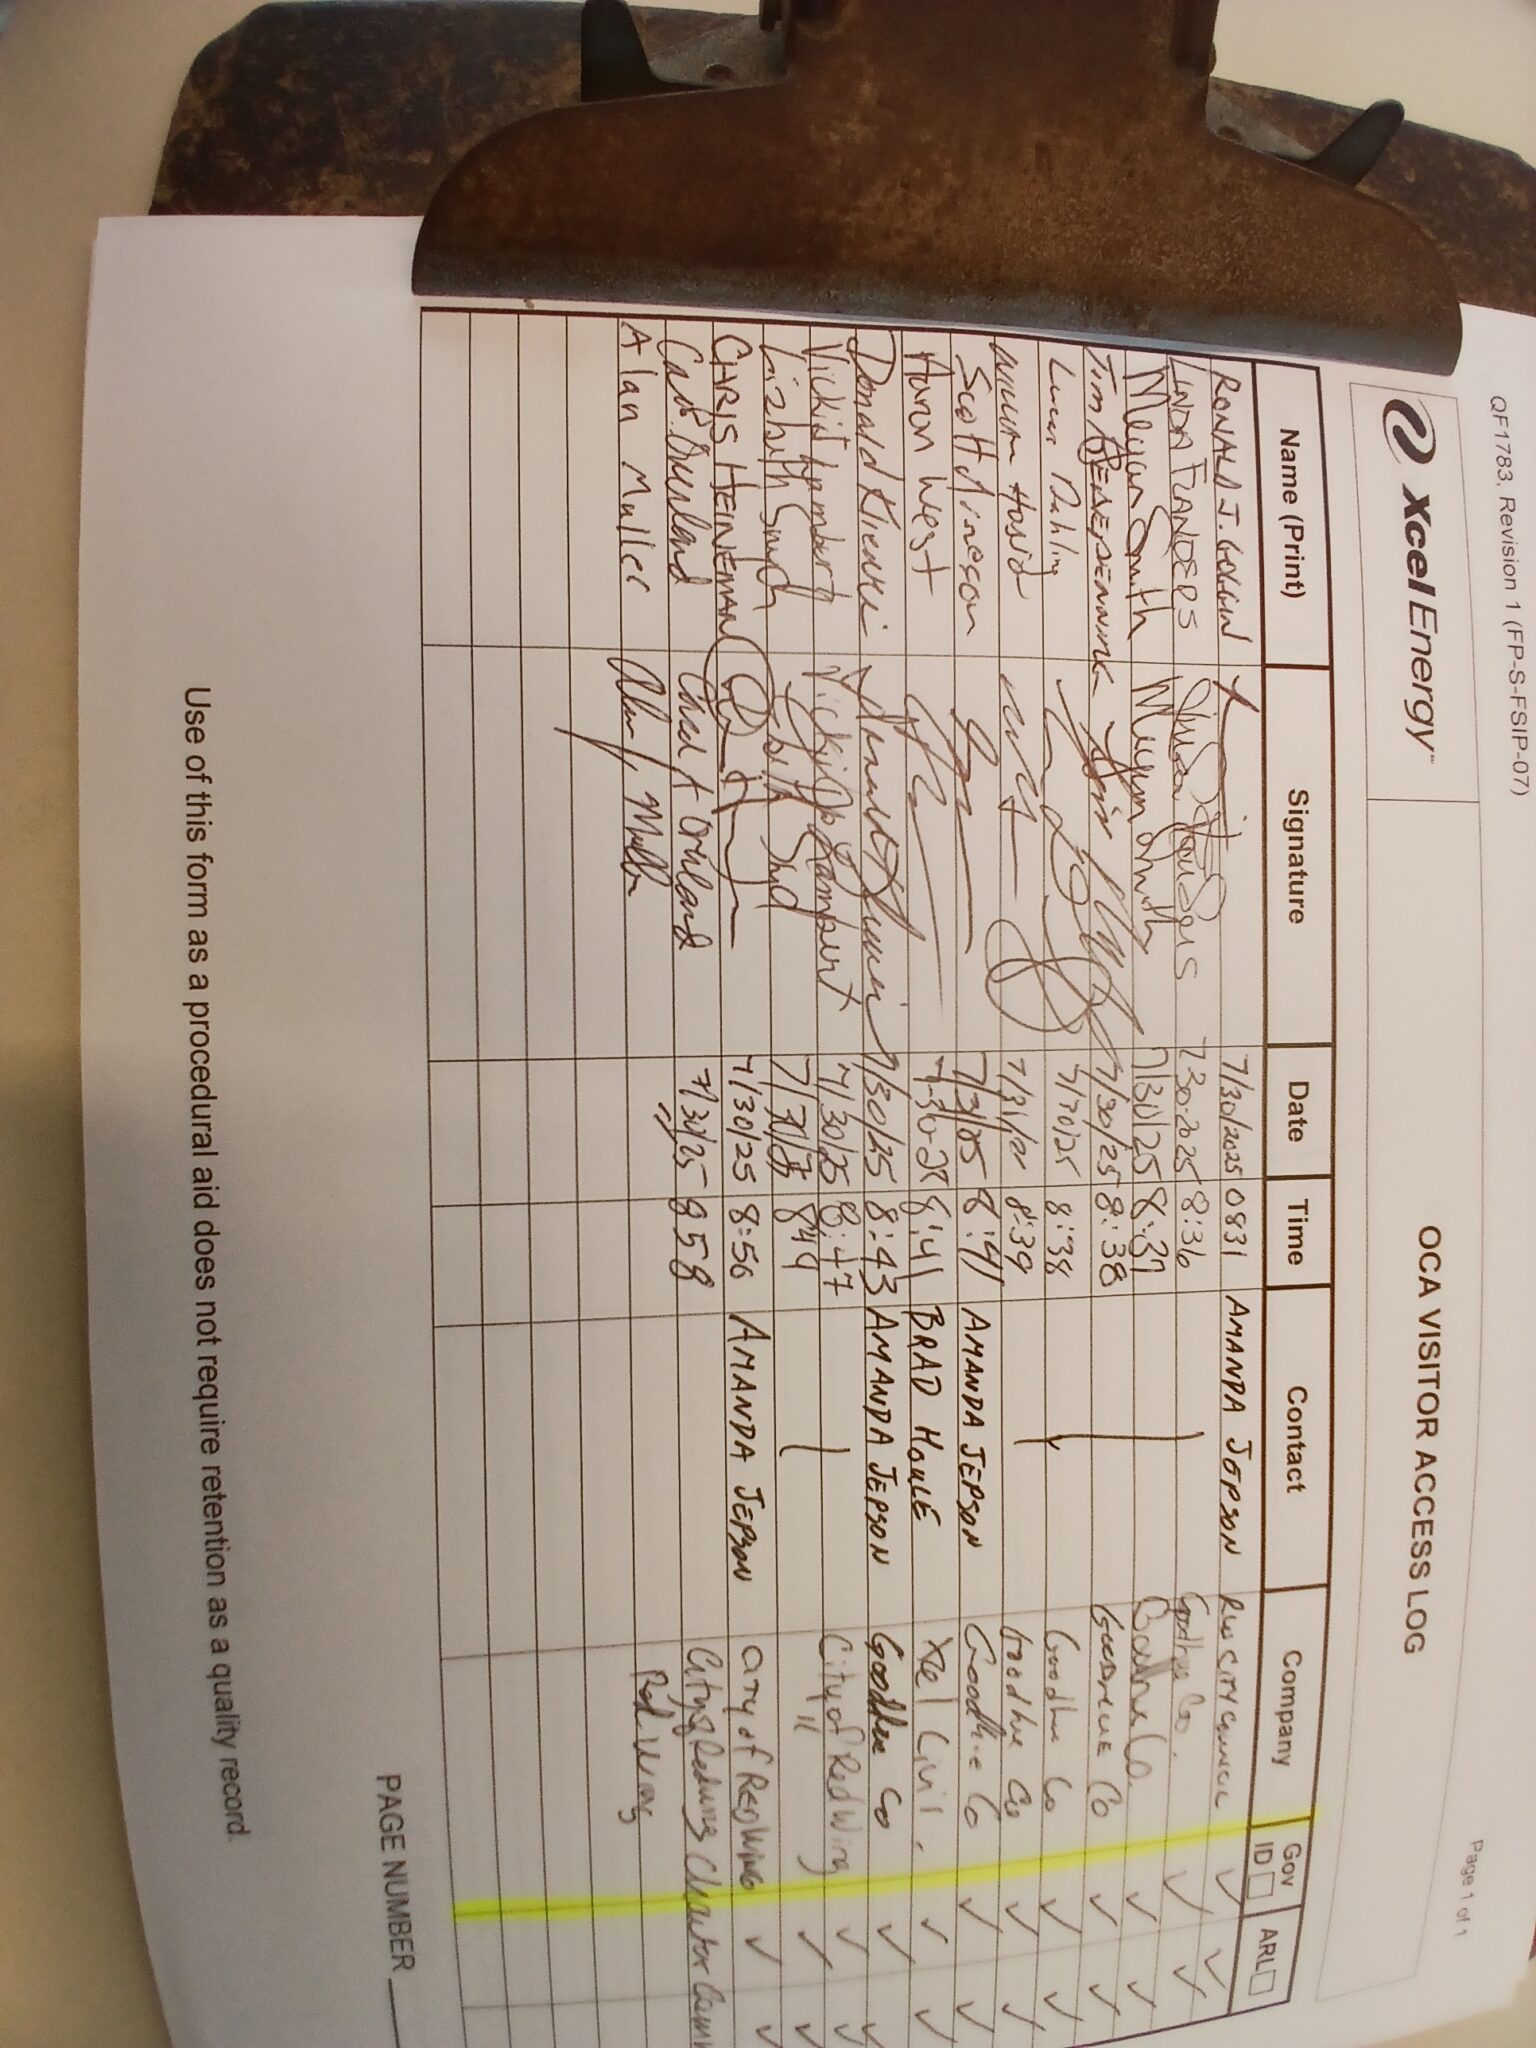 QF1783, Revision 1 (FP-S-FSIP-07) Page 1 of 1
Xcel Energy OCA VISITOR ACCESS LOG
Name (Print) Signature Date Time Contact Company Gov ID ARL
RONALD J. 7/30/2025 0831 AMANDA JEPSON RW CITY COUNCIL
LINDA FLANDERS 7-30-2025 8:36 Goodhue Co.
Megan Smith Megan Smith 7/30/25 8:37 Goodhue Co.
Tim 7/30/25 8:38 GOODHUE Co
Lucas Dahling 7/30/25 8:38 Goodhue Co
William 8:39 Goodhue Co
Scott Arneson 8:41 AMANDA JEPSON Goodhue Co
Aaron West 8:41 BRAD HOULE Xcel Civil.
Donald 7/30/25 8:43 AMANDA JEPSON Goodhue Co
Vicki Lambert Vicki Lambert 7/30/25 8:47 City of Red Wing
849 "
CHRIS HEINEMAN 7/30/25 8:50 AMANDA JEPSON CITY of RED WING
7/30/25 858 City of Redwing Charter Comm
Alan Muller Alan Muller Red Wing
PAGE NUMBER
Use of this form as a procedural aid does not require retention as a quality record.